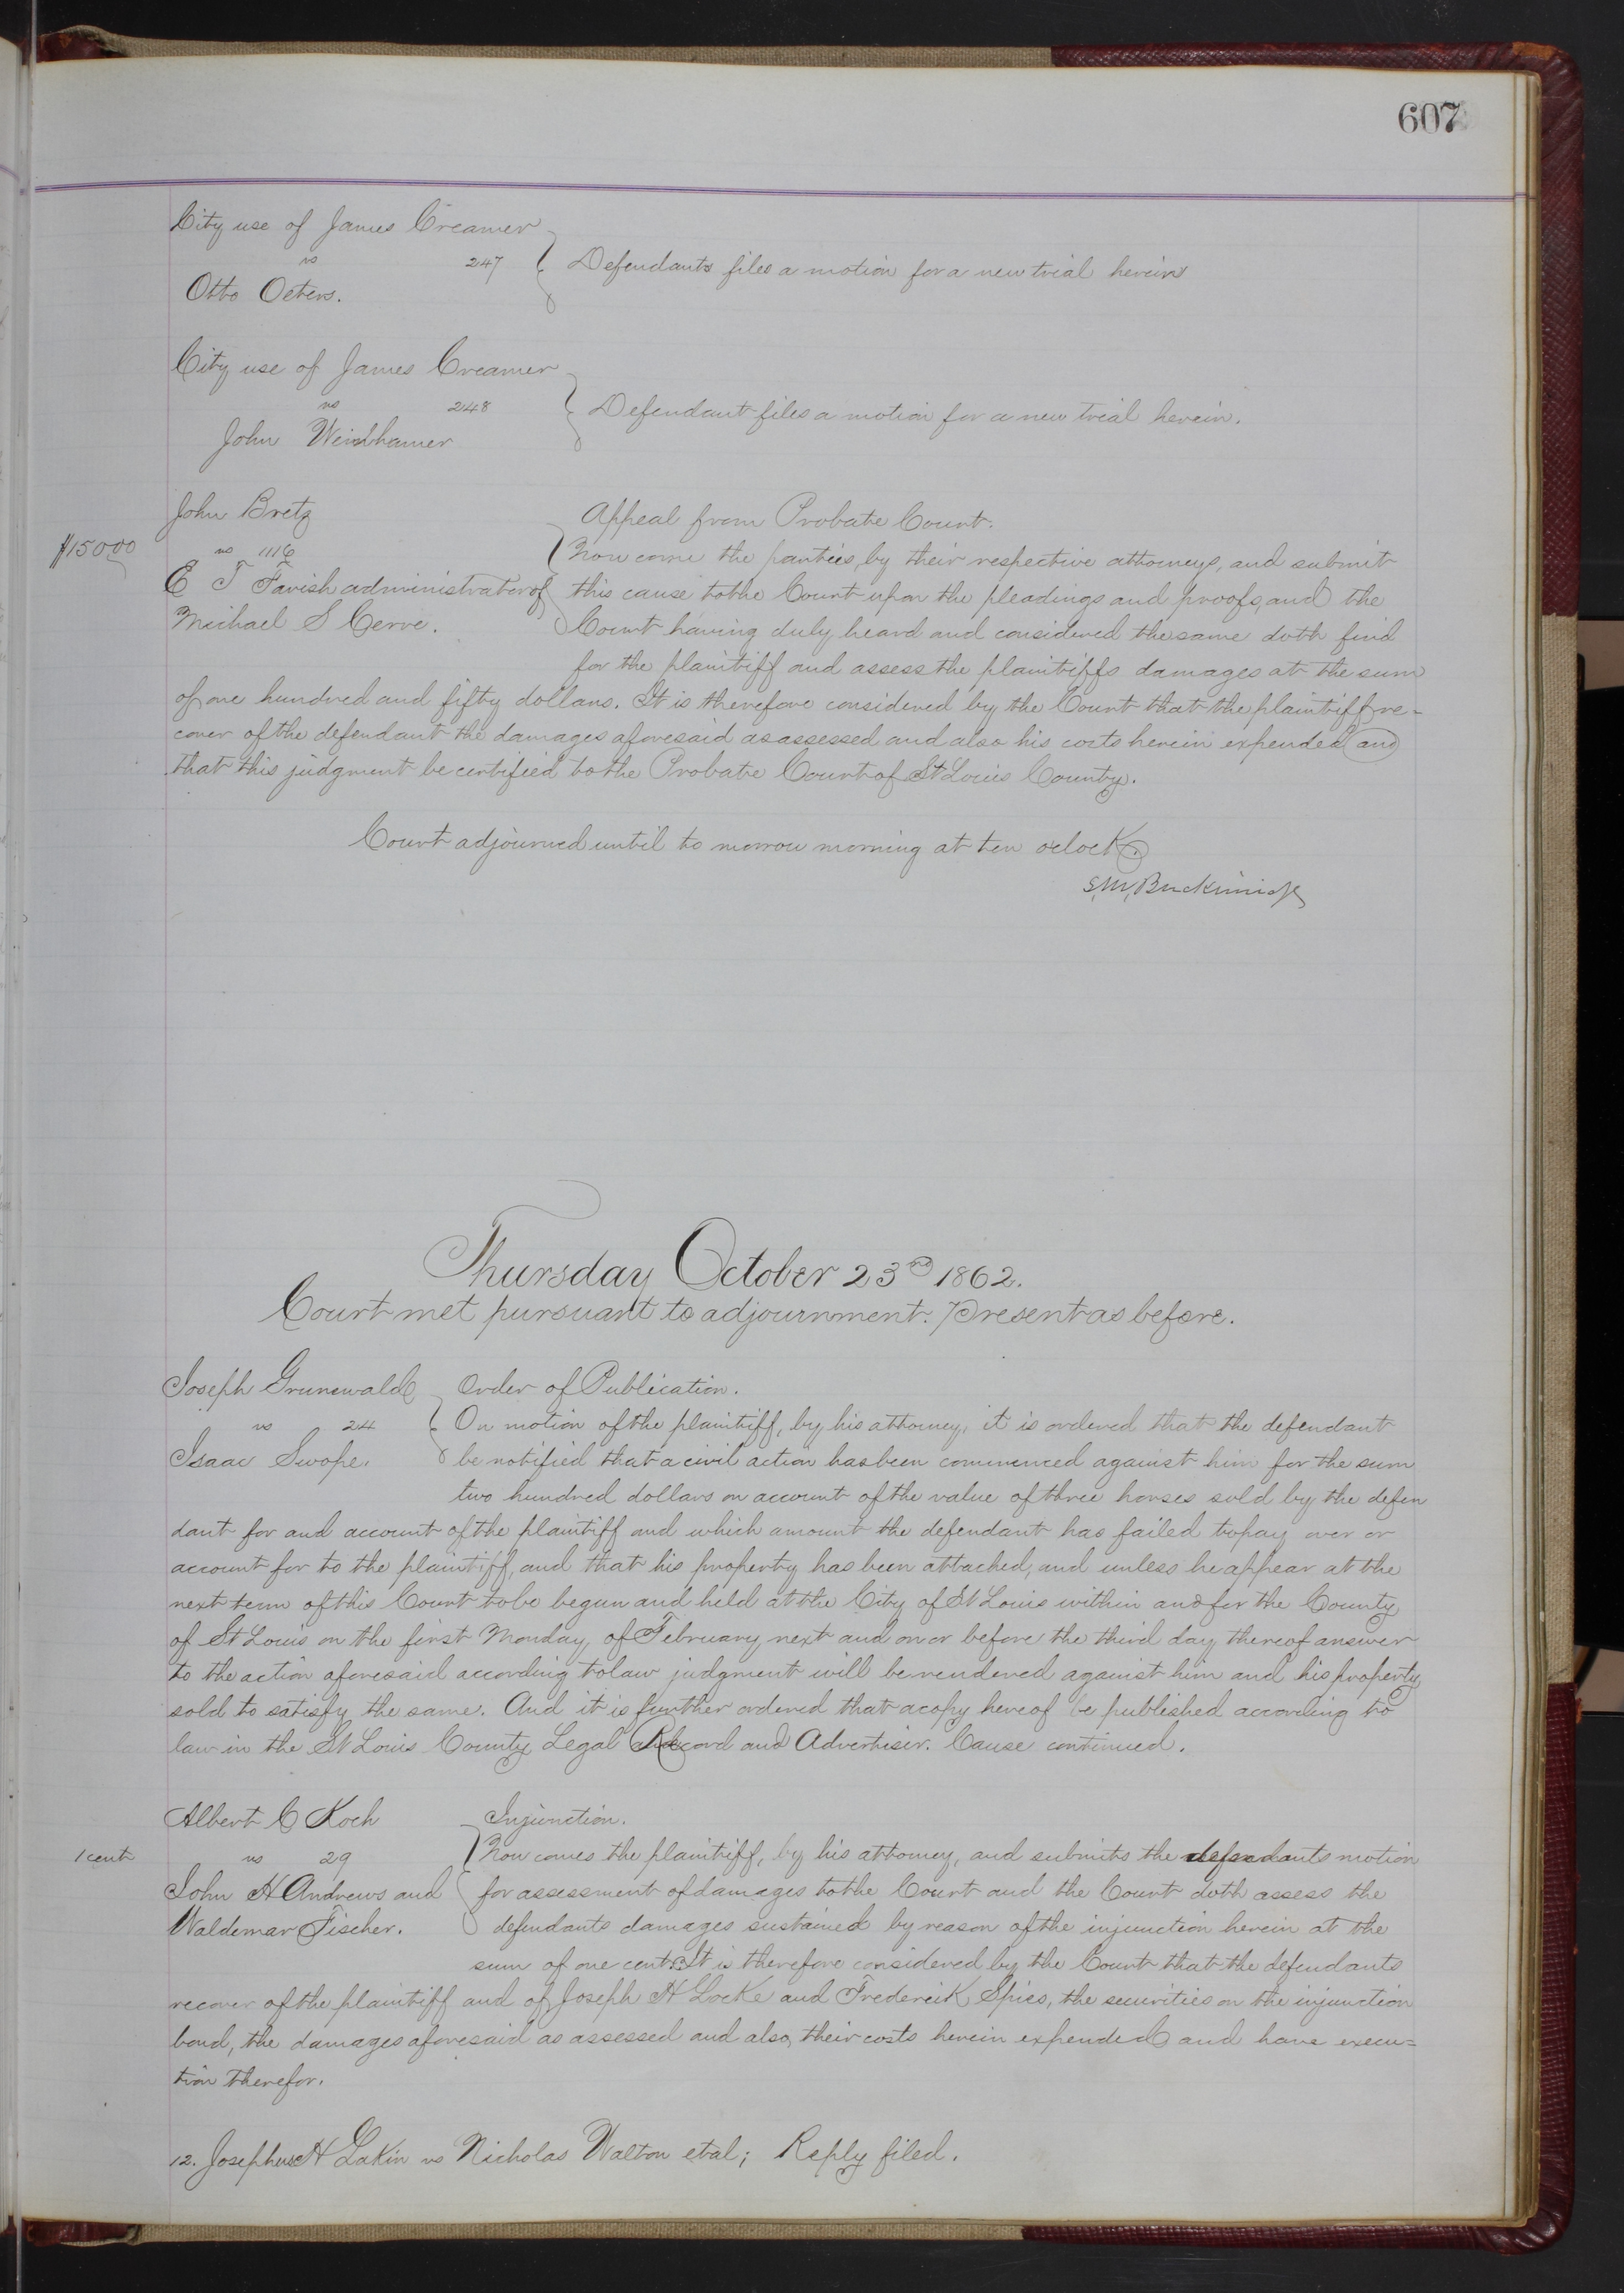 607
City use of James Creamer
vs 247
Otto Oeters.
Defendants files a motion for a new trial herein
City use of James Creamer
vs 248
John Weindhamer
Defendant files a motion for a new trial herein.
John Bretz
Appeal from Probate Court.
$150 00
vs 1116
Now come the parties, by their respective attorneys, and submit
E T Farish administrator of
this cause to the Court upon the pleadings and proofs, and the
Michael S Cerre.
Court having duly heard and considered the same doth find
for the plaintiff and assess the plaintiffs damages at the sum
of one hundred and fifty dollars. It is therefore considered by the Court that the plaintiff re-
cover of the defendant the damages aforesaid as assessed and also his costs herein expended and
that this judgment be certified to the Probate Court of St Louis County.
Court adjourned until to morrow morning at ten oclock.
S.M.
Thursday October 23rd 1862.
Court met pursuant to adjournment. Present as before.
Joseph Grunewald
Order of Publication.
vs 24
On motion of the plaintiff, by his attorney, it is ordered that the defendant
Isaac Swope.
be notified that a civil action has been commenced against him for the sum
two hundred dollars on account of the value of three horses sold by the defen
dant for and account of the plaintiff and which amount the defendant has failed to pay over or
account for to the plaintiff, and that his property has been attached, and unless he appear at the
next term of this Court to be begun and held at the City of St Louis within and for the County
of St Louis on the first Monday of February next and on or before the third day thereof answer
to the action aforesaid according to law judgment will be rendered against him and his property
sold to satisfy the same. And it is further ordered that a copy hereof be published according to
law in the St Louis County Legal Record and Advertiser. Cause continued.
Albert C Koch
Injunction.
1 cent
vs 29
Now comes the plaintiff, by his attorney, and submits the defendants motion
John H Andrews and
for assessment of damages to the Court and the Court doth assess the
Waldemar Fischer.
defendants damages sustained by reason of the injunction herein at the
sum of one cent. It is therefore considered by the Court that the defendants
recover of the plaintiff and of Joseph H Locke and Frederick Spies, the securities on the injunction
bond, the damages aforesaid as assessed and also, their costs herein expended and have execu=
tion therefor.
12. Josephus H Lakin vs Nicholas Walton etal; Reply filed.